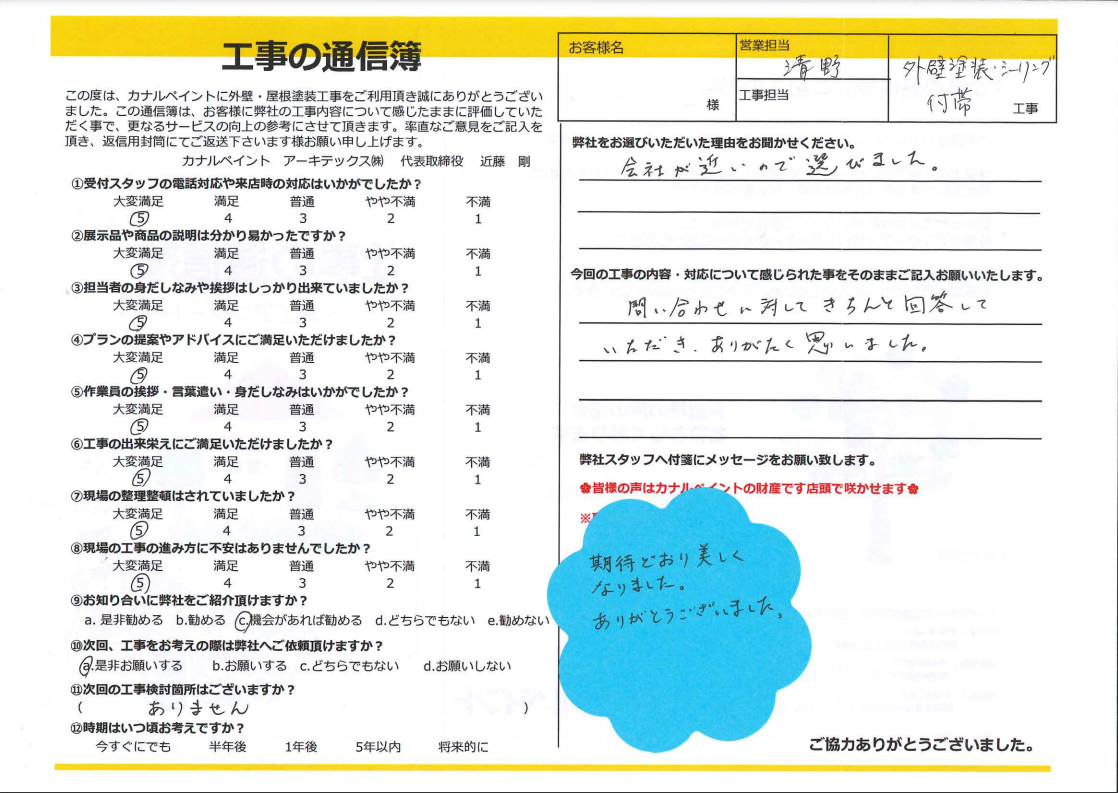 工事の通信簿
この度は、カナルペイントに外壁・屋根塗装工事をご利用頂き誠にありがとうござい
ました。この通信簿は、お客様に弊社の工事内容について感じたままに評価していた
だく事で、更なるサービスの向上の参考にさせて頂きます。率直なご意見をご記入を
頂き、返信用封筒にてご返送下さいます様お願い申し上げます。
カナルペイント アーキテックス㈱ 代表取締役 近藤 剛
①受付スタッフの電話対応や来店時の対応はいかがでしたか？
大変満足 満足 普通 やや不満 不満
5 4 3 2 1
②展示品や商品の説明は分かり易かったですか？
大変満足 満足 普通 やや不満 不満
5 4 3 2 1
③担当者の身だしなみや挨拶はしっかり出来ていましたか？
大変満足 満足 普通 やや不満 不満
5 4 3 2 1
④プランの提案やアドバイスにご満足いただけましたか？
大変満足 満足 普通 やや不満 不満
5 4 3 2 1
⑤作業員の挨拶・言葉遣い・身だしなみはいかがでしたか？
大変満足 満足 普通 やや不満 不満
5 4 3 2 1
⑥工事の出来栄えにご満足いただけましたか？
大変満足 満足 普通 やや不満 不満
5 4 3 2 1
⑦現場の整理整頓はされていましたか？
大変満足 満足 普通 やや不満 不満
5 4 3 2 1
⑧現場の工事の進み方に不安はありませんでしたか？
大変満足 満足 普通 やや不満 不満
5 4 3 2 1
⑨お知り合いに弊社をご紹介頂けますか？
a. 是非勧める b.勧める c.機会があれば勧める d.どちらでもない e.勧めない
⑩次回、工事をお考えの際は弊社へご依頼頂けますか？
a.是非お願いする b.お願いする c.どちらでもない d.お願いしない
⑪次回の工事検討箇所はございますか？
( ありません )
⑫時期はいつ頃お考えですか？
今すぐにでも 半年後 1年後 5年以内 将来的に
お客様名
様
営業担当
清野
工事担当
外壁塗装・シーリング
付帯 工事
弊社をお選びいただいた理由をお聞かせください。
会社が近いので選びました。
今回の工事の内容・対応について感じられた事をそのままご記入お願いいたします。
問い合わせに対してきちんと回答して
いただき、ありがたく思いました。
弊社スタッフへ付箋にメッセージをお願い致します。
✿皆様の声はカナルペイントの財産です店頭で咲かせます✿
※
期待どおり美しく
なりました。
ありがとうございました。
ご協力ありがとうございました。